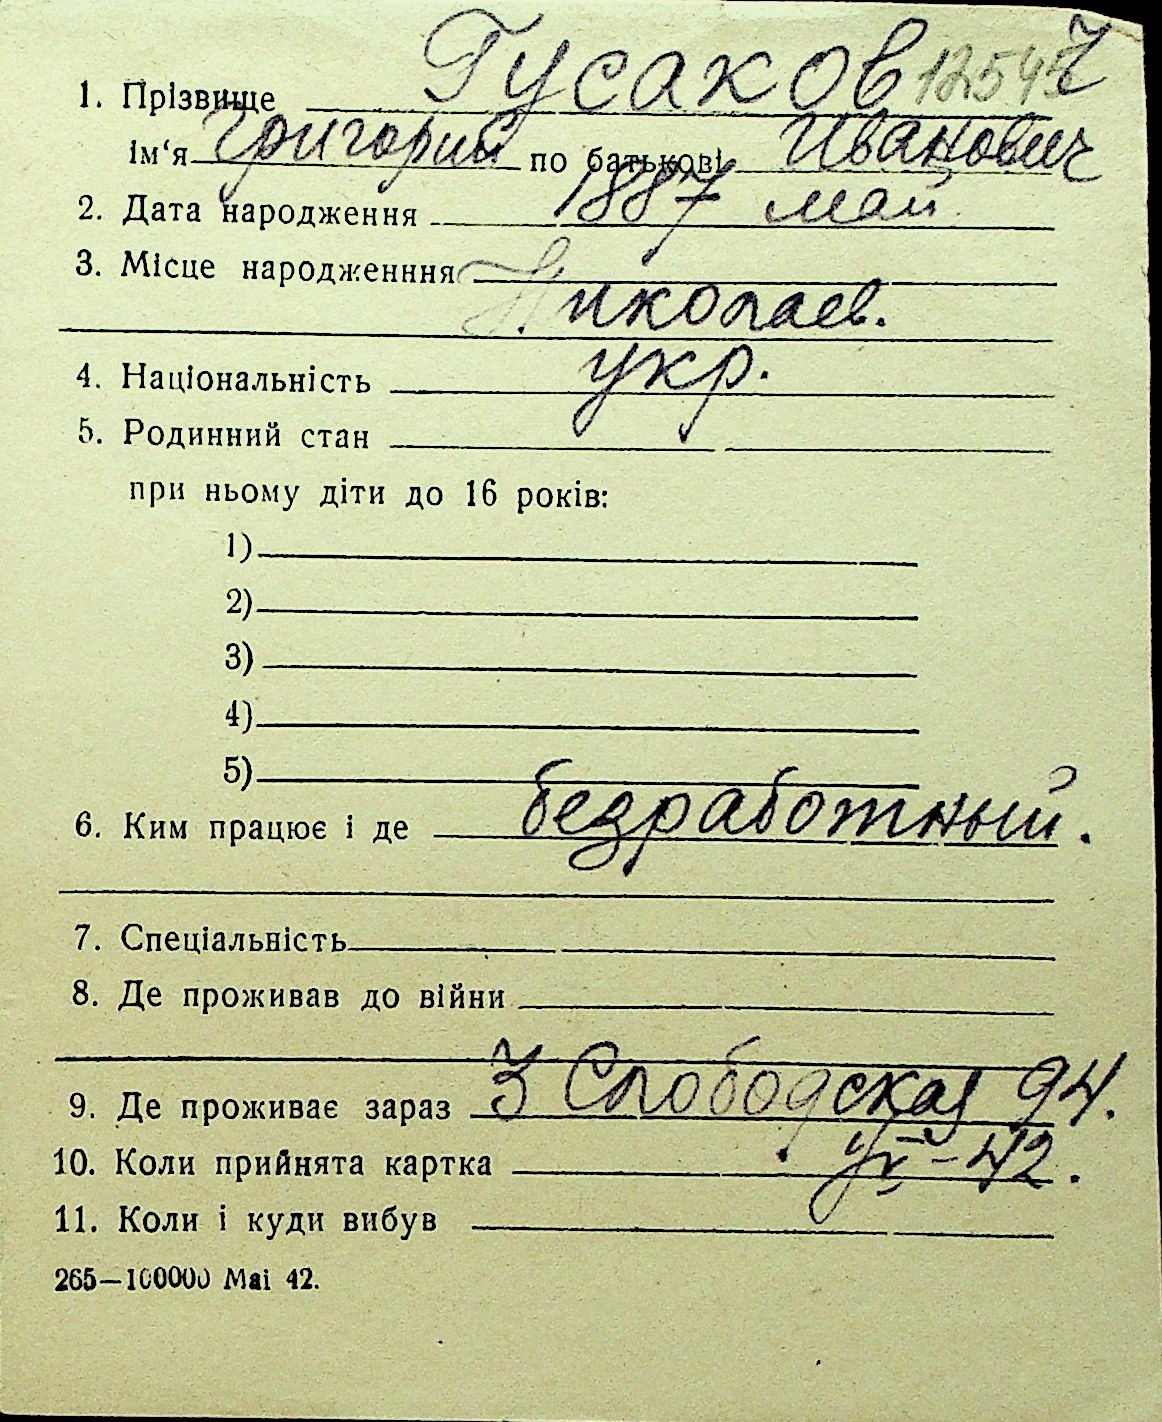 1. Прізвище Гусаков 12545 7
ім‘я Григорий по батькові Иванович
2. Дата народження 1887 май
3. Місце народженння
Николаев.
4. Національність укр.
5. Родинний стан
при ньому діти до 16 років:
1)
2)
3)
4)
5)
6. Ким працює і де безработный.
7. Спеціальність
8. Де проживав до війни
9. Де проживає зараз 3 Слободская 94.
10. Коли прийнята картка -42.
11. Коли і куди вибув
265—100000 Mai 42.